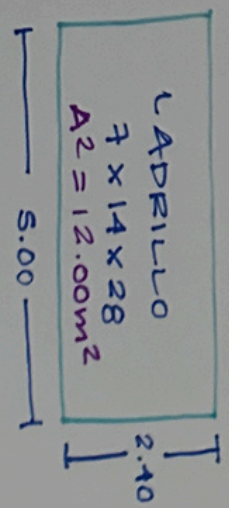 LADRILLO
7 x 14 x 28
A2 = 12.00m²
5.00
2.40